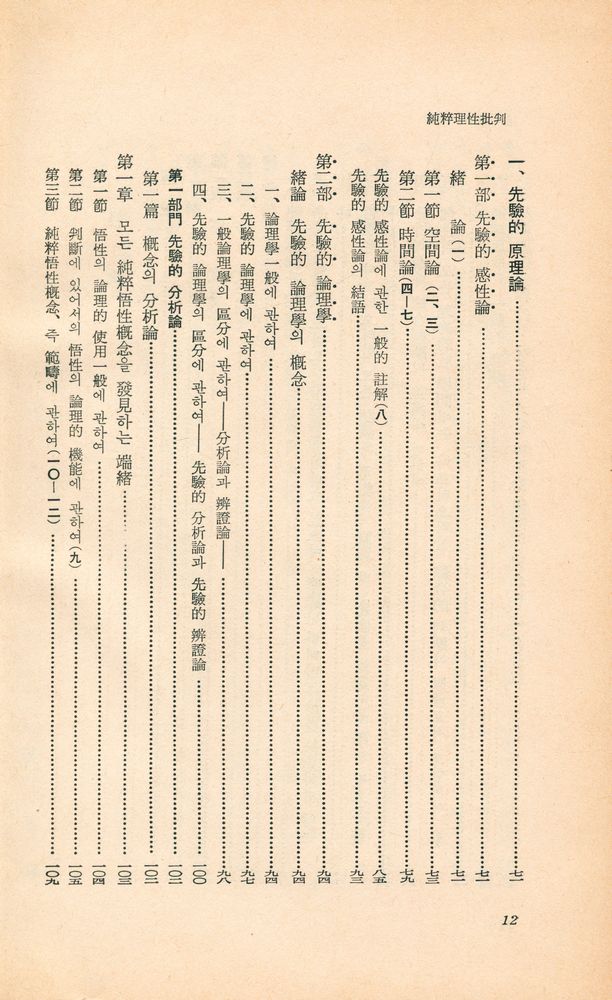 純粹理性批判
一、先驗的 原理論 七一
第一部 先驗的 感性論 七一
緖 論(一) 七一
第一節 空間論(二、三) 七三
第二節 時間論(四—七) 七九
先驗的 感性論에 관한 一般的 註解(八) 八五
先驗的 感性論의 結語 九三
第二部 先驗的 論理學 九四
緖論 先驗的 論理學의 槪念 九四
一、論理學一般에 관하여 九四
二、先驗的 論理學에 관하여 九七
三、一般論理學의 區分에 관하여——分析論과 辨證論—— 九八
四、先驗的 論理學의 區分에 관하여—— 先驗的 分析論과 先驗的 辨證論 一〇〇
第一部門 先驗的 分析論 一〇二
第一篇 槪念의 分析論 一〇二
第一章 모든 純粹悟性槪念을 發見하는 端緖 一〇三
第一節 悟性의 論理的 使用一般에 관하여 一〇四
第二節 判斷에 있어서의 悟性의 論理的 機能에 관하여(九) 一〇五
第三節 純粹悟性槪念、즉 範疇에 관하여(一〇—一二) 一〇九
12